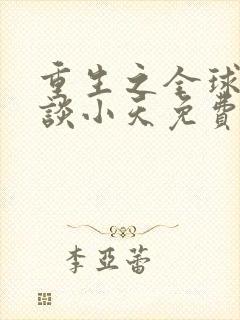 重生之全球
談小天免費
李亞蕾